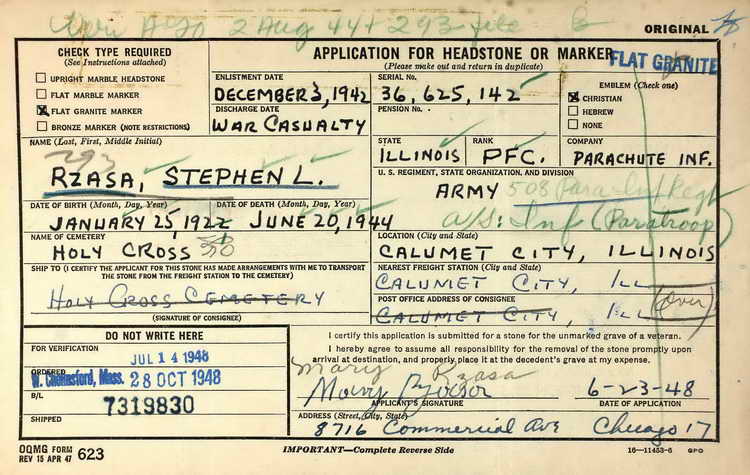 2 Aug 44 + 293 file
ORIGINAL
CHECK TYPE REQUIRED
(See Instructions attached)
UPRIGHT MARBLE HEADSTONE
FLAT MARBLE MARKER
FLAT GRANITE MARKER
BRONZE MARKER (NOTE RESTRICTIONS)
APPLICATION FOR HEADSTONE OR MARKER
(Please make out and return in duplicate)
FLAT GRANITE
ENLISTMENT DATE
DECEMBER 3, 1942
SERIAL NO.
36,625,142
EMBLEM (Check one)
CHRISTIAN
HEBREW
NONE
DISCHARGE DATE
WAR CASUALTY
PENSION NO.
NAME (Last, First, Middle Initial)
293
RZASA, STEPHEN L.
STATE
ILLINOIS
RANK
PFC.
COMPANY
PARACHUTE INF.
U. S. REGIMENT, STATE ORGANIZATION, AND DIVISION
ARMY 508 Para Inf Regt
A/S: Inf (Paratroop)
DATE OF BIRTH (Month, Day, Year)
JANUARY 25, 1922
DATE OF DEATH (Month, Day, Year)
JUNE 20, 1944
NAME OF CEMETERY
HOLY CROSS
LOCATION (City and State)
CALUMET CITY, ILLINOIS
SHIP TO (I CERTIFY THE APPLICANT FOR THIS STONE HAS MADE ARRANGEMENTS WITH ME TO TRANSPORT
THE STONE FROM THE FREIGHT STATION TO THE CEMETERY)
HOLY CROSS CEMETERY
(SIGNATURE OF CONSIGNEE)
NEAREST FREIGHT STATION (City and State)
CALUMET CITY, ILL
POST OFFICE ADDRESS OF CONSIGNEE
CALUMET CITY, ILL
(Over)
DO NOT WRITE HERE
FOR VERIFICATION
JUL 14 1948
ORDERED
W. Chelmsford, Mass. 28 OCT 1948
B/L
7319830
SHIPPED
I certify this application is submitted for a stone for the unmarked grave of a veteran.
I hereby agree to assume all responsibility for the removal of the stone promptly upon
arrival at destination, and properly place it at the decedent's grave at my expense.
Mary Rzasa
Mary Rzasa
6-23-48
APPLICANT'S SIGNATURE
DATE OF APPLICATION
ADDRESS (Street, City, State)
8716 Commercial Ave Chicago 17
OQMG FORM
REV 15 APR 47
623
IMPORTANT—Complete Reverse Side
16—11453-6 GPO